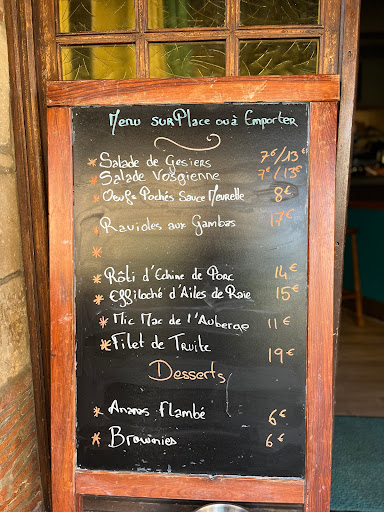 Menu sur Place ou à Emporter
* Salade de Gesiers 7€/13€
* Salade Vosgienne 7€/13€
* Oeufs Pochés Sauce Meurette 8€
* Ravioles aux Gambas 17€
*
* Rôti d'Echine de Porc 14€
* Effiloché d'Ailes de Raie 15€
* Mic Mac de l'Auberge 11€
* Filet de Truite 19€
Desserts
* Ananas Flambé 6€
* Brownies 6€